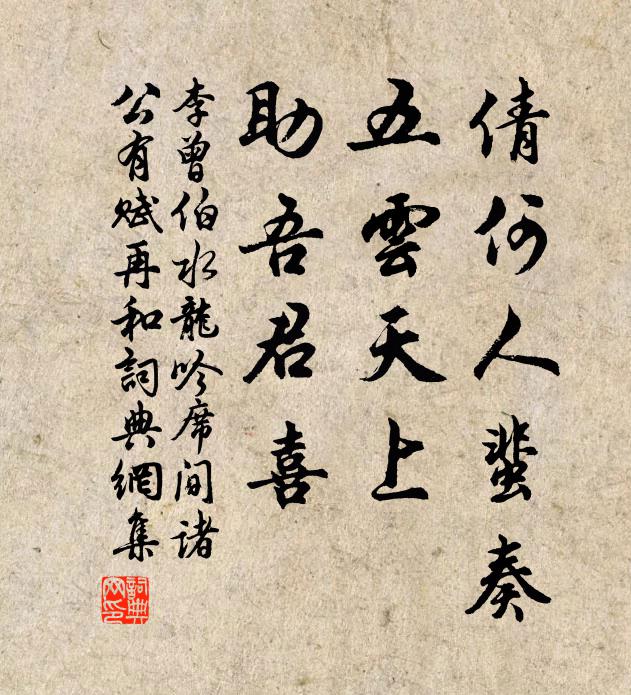 倩何人蜚奏
五雲天上
助吾君喜
李曾伯水龍吟席間諸
公有賦再和詞典網集
詞典
网印